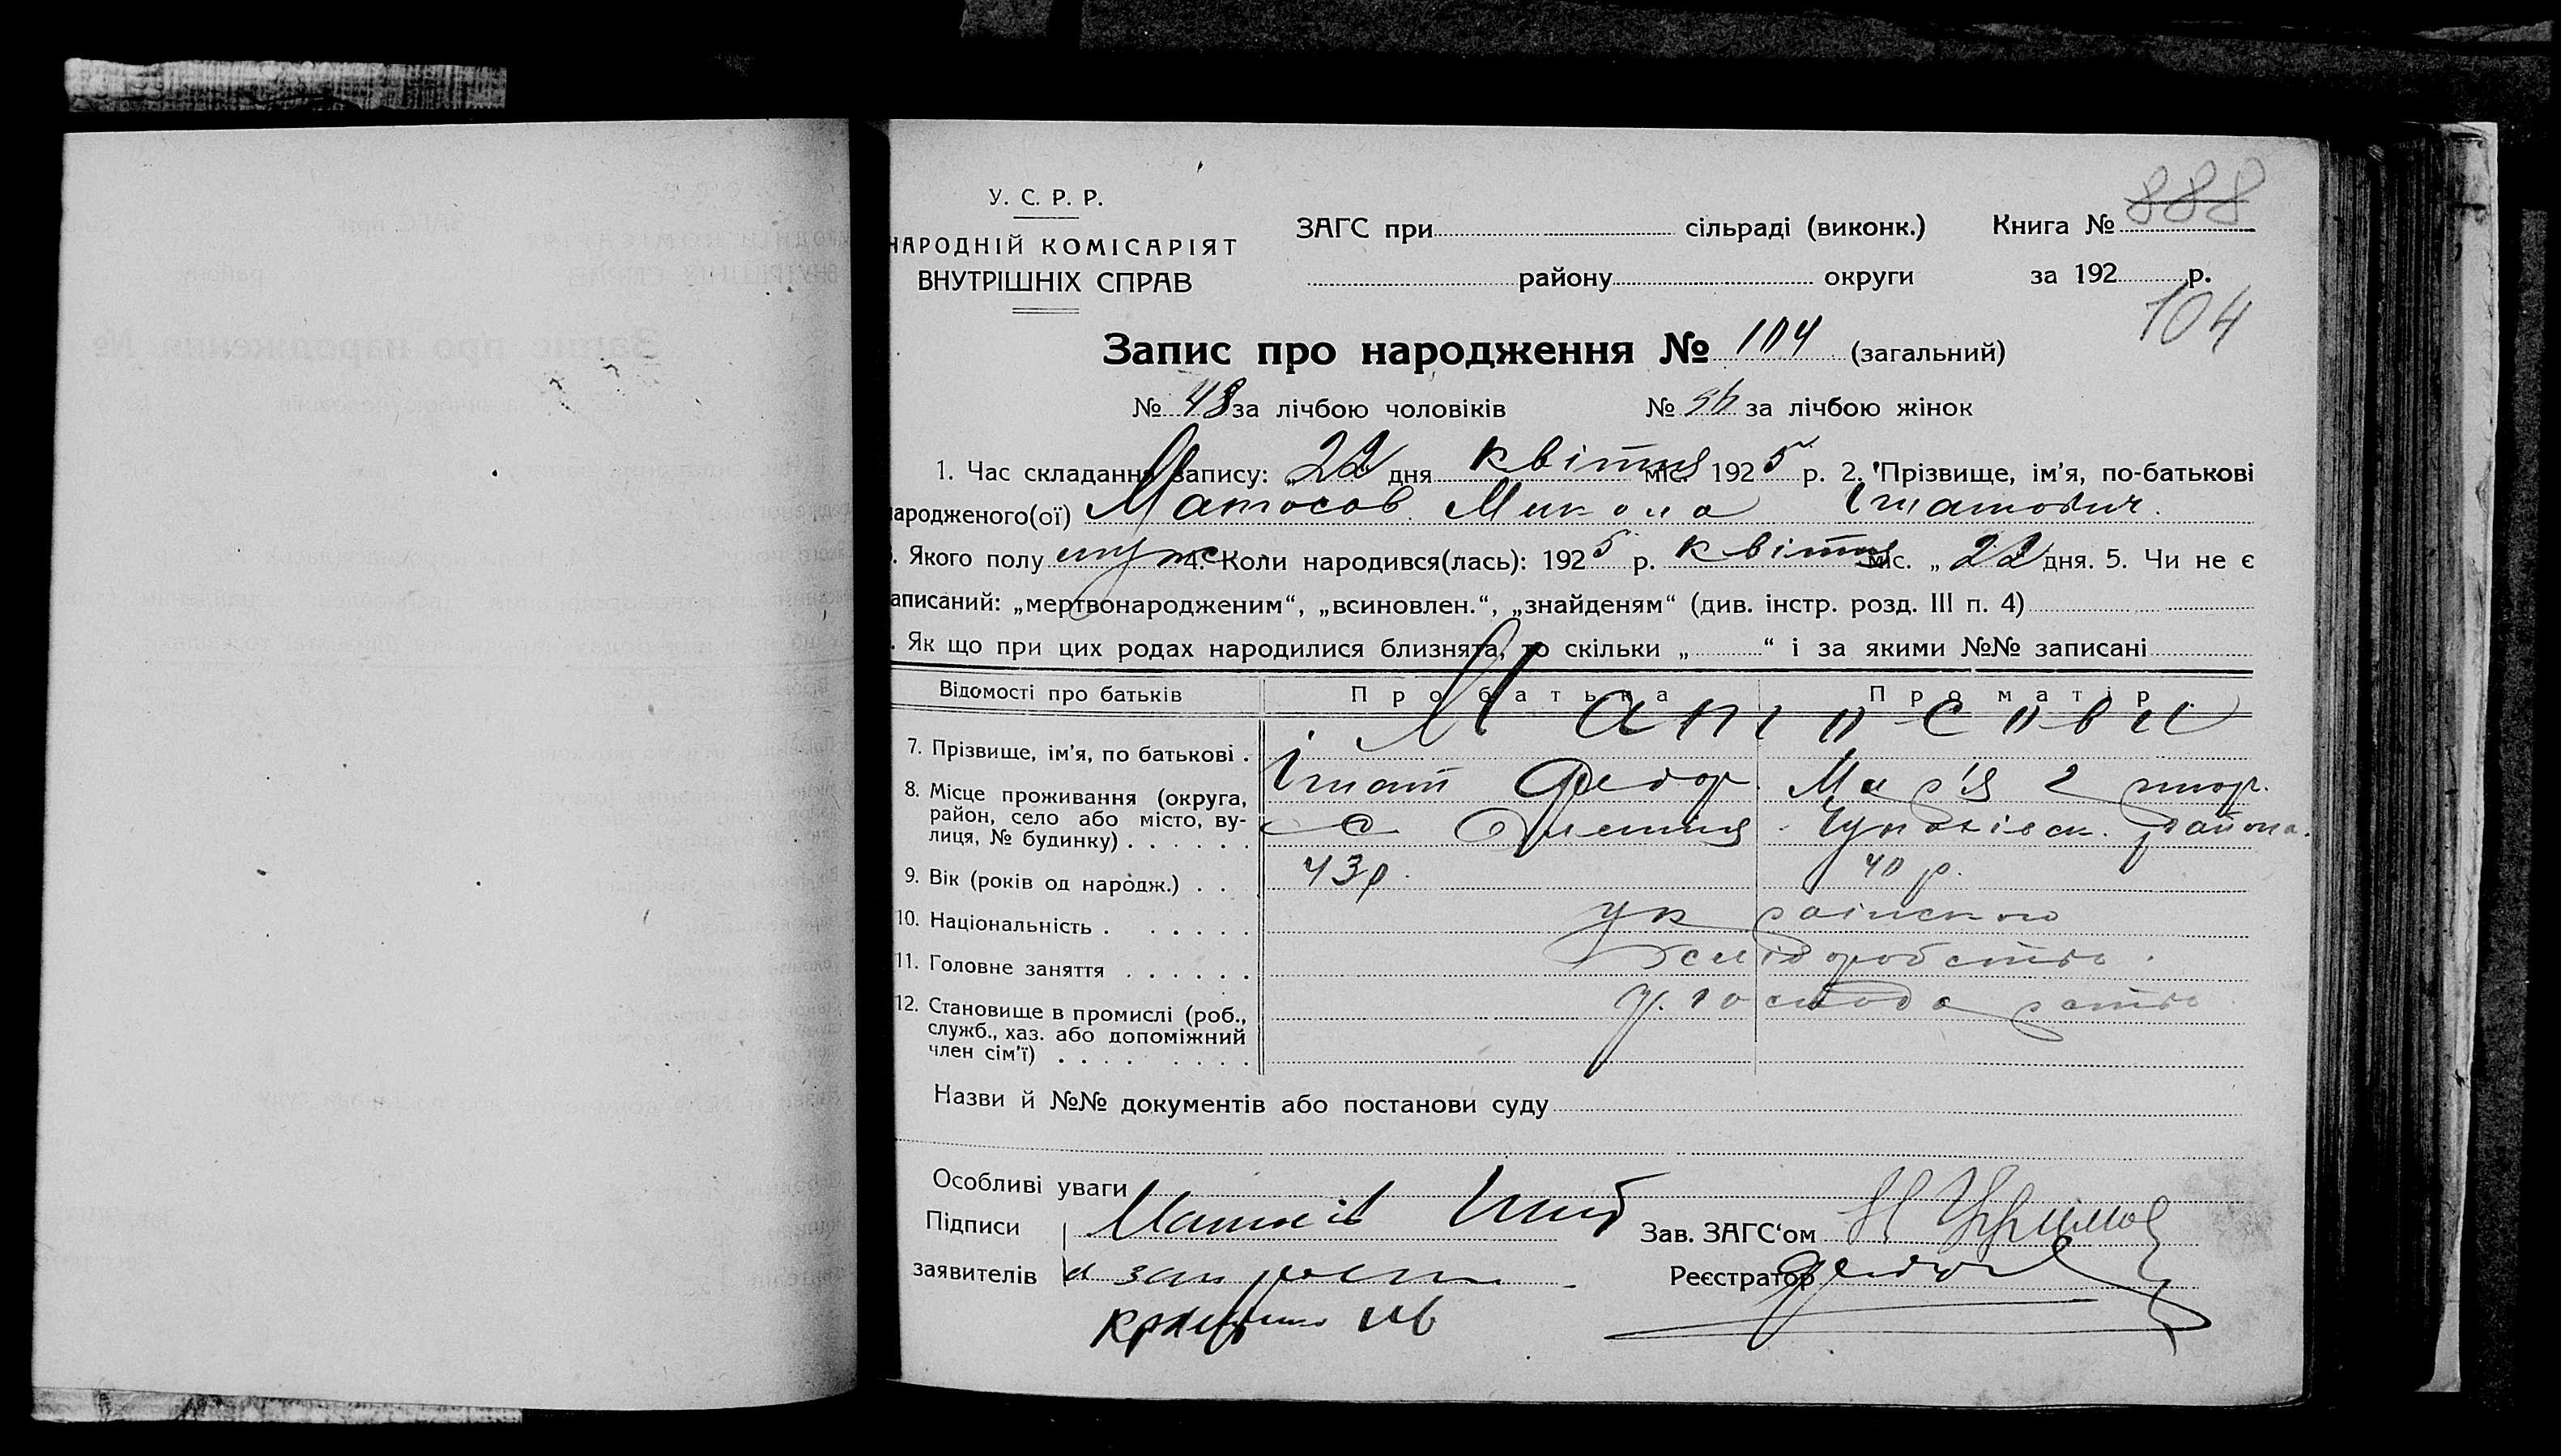 У. С. Р. Р.
НАРОДНІЙ КОМІСАРІЯТ
ВНУТРІШНІХ СПРАВ
ЗАГС при сільраді (виконк.) Книга № 888
району округи за 192 р.
104
Запис про народження № 104 (загальний)
№ 48 за лічбою чоловіків № 56 за лічбою жінок
1. Час складання запису: „22 дня квітня міс. 1925 р. 2. Прізвище, ім'я, по-батькові
народженого(ої) Матосов Микола Ігнатович.
Якого полу муж 4. Коли народився(лась): 1925 р. квітня міс. „ 22 дня. 5. Чи не є
аписаний: „мертвонародженим“, „всиновлен.“, „знайденям“ (див. інстр. розд. III п. 4)
. Як що при цих родах народилися близнята, то скільки „ “ і за якими №№ записані
Відомості про батьків Про батька Про матір
7. Прізвище, ім'я, по батькові . Матосови
Ігнат Федор. Мар'я
8. Місце проживання (округа, район, село або місто, вулиця, № будинку) . . . . . . с района.
9. Вік (років од народж.) . . 43 р. 40 р.
10. Національність . . . . . . українською
11. Головне заняття . . . . . . хліборобство.
12. Становище в промислі (роб., служб., хаз. або допоміжний член сім'ї) . . . . . . . .
Назви й №№ документів або постанови суду
Особливі уваги
Підписи Зав. ЗАГС'ом
заявителів Реєстратор